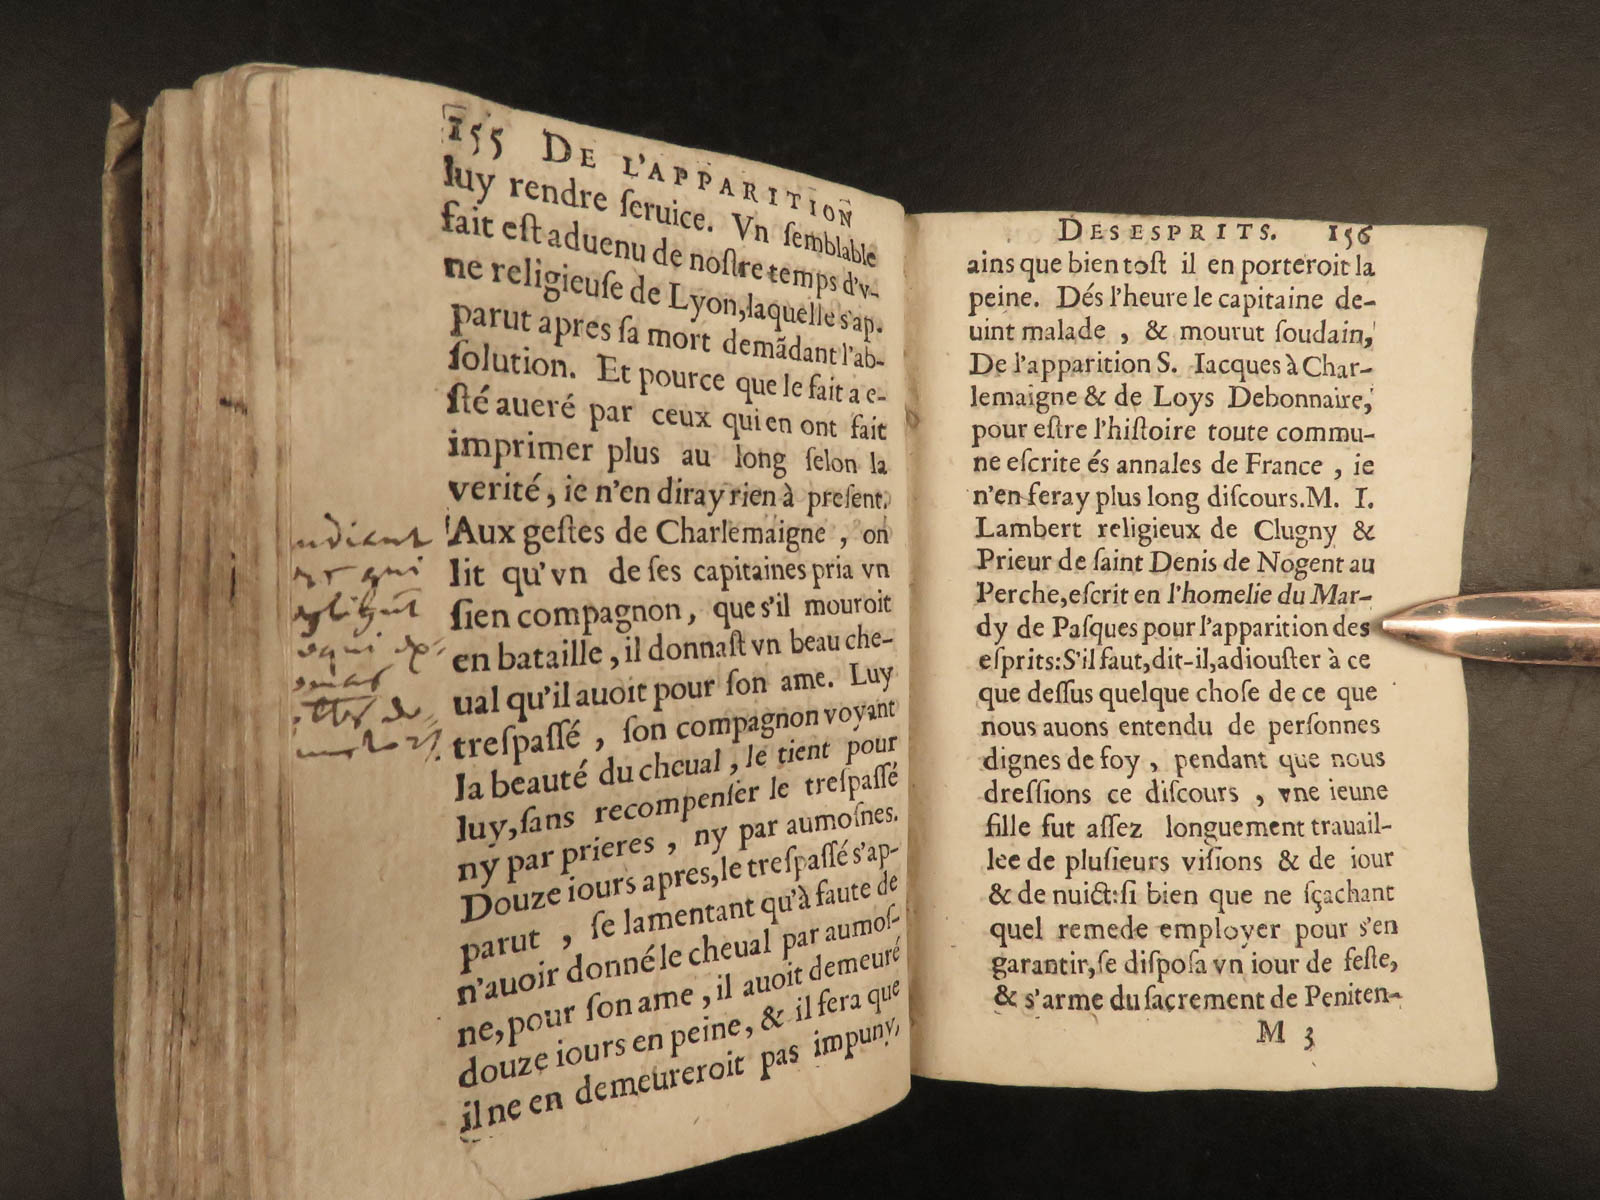 155 DE L'APPARITION
luy rendre ſeruice. Vn ſemblable
fait eſt aduenu de noſtre temps d'v-
ne religieuſe de Lyon, laquelle s'ap-
parut apres ſa mort demãdant l'ab-
ſolution. Et pource que le fait a e-
ſté aueré par ceux qui en ont fait
imprimer plus au long ſelon la
verité, ie n'en diray rien à preſent.
Aux geſtes de Charlemaigne, on
lit qu'vn de ſes capitaines pria vn
ſien compagnon, que s'il mouroit
en bataille, il donnaſt vn beau che-
ual qu'il auoit pour ſon ame. Luy
treſpaſſé, ſon compagnon voyant
la beauté du cheual, le tient pour
luy, ſans recompenſer le treſpaſſé
ny par prieres, ny par aumoſnes.
Douze iours apres, le treſpaſſé s'ap-
parut, ſe lamentant qu'à faute de
n'auoir donné le cheual par aumoſ-
ne, pour ſon ame, il auoit demeuré
douze iours en peine, & il fera que
il ne en demeureroit pas impuny,
qui
DES ESPRITS. 156
ains que bien toſt il en porteroit la
peine. Dés l'heure le capitaine de-
uint malade, & mourut ſoudain,
De l'apparition S. Iacques à Char-
lemaigne & de Loys Debonnaire,
pour eſtre l'hiſtoire toute commu-
ne eſcrite és annales de France, ie
n'en feray plus long diſcours. M. I.
Lambert religieux de Clugny &
Prieur de ſaint Denis de Nogent au
Perche, eſcrit en l'homelie du Mar-
dy de Paſques pour l'apparition des
eſprits: S'il faut, dit-il, adiouſter à ce
que deſſus quelque choſe de ce que
nous auons entendu de perſonnes
dignes de foy, pendant que nous
dreſſions ce diſcours, vne ieune
fille fut aſſez longuement trauail-
lee de pluſieurs viſions & de iour
& de nuict: ſi bien que ne ſçachant
quel remede employer pour s'en
garantir, ſe diſpoſa vn iour de feſte,
& s'arme du ſacrement de Peniten-
M 3